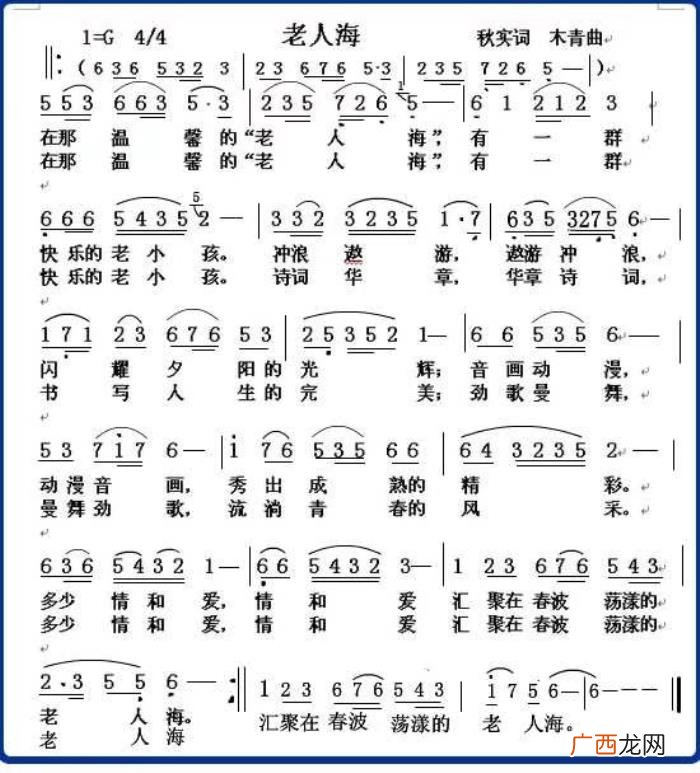 1=G 4/4 老人海 秋实词 木青曲
(636 532 3 | 23 676 5·3 | 235 726 5— )
553 663 5·3 | 235 726 5— | 6 1 212 3 |
在那温馨的“老人海”,有一群
在那温馨的“老人海”,有一群
666 5435 5 2— | 332 3235 1·7 | 635 3275 6— |
快乐的老小孩。冲浪遨游,遨游冲浪,
快乐的老小孩。诗词华章,华章诗词,
171 23 676 53 | 25352 1— | 66 535 6— |
闪耀夕阳的光辉;音画动漫,
书写人生的完美;劲歌曼舞,
53 717 6— | 176 535 66 | 64 3235 2— |
动漫音画,秀出成熟的精彩。
曼舞劲歌,流淌青春的风采。
636 5432 1— | 66 5432 3— | 1 23 676 543
多少情和爱,情和爱汇聚在春波荡漾的
多少情和爱,情和爱汇聚在春波荡漾的
2·35 5 6— :‖ 123 676 543 | 175 6—6—— ‖
老人海。 汇聚在春波荡漾的老人海。
老人海
广西龙网